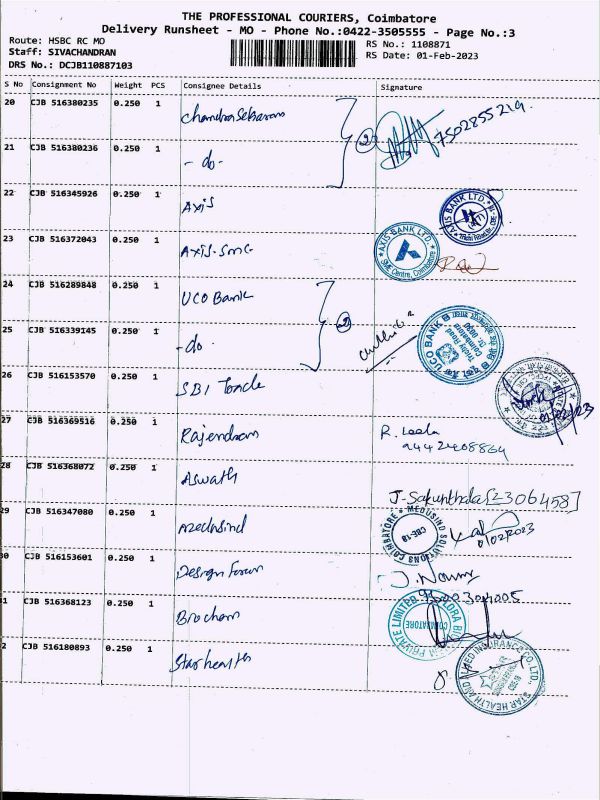 THE PROFESSIONAL COURIERS, Coimbatore
Delivery Runsheet - MO - Phone No.:0422-3505555 - Page No.:3
Route: HSBC RC MO
RS No.: 1108871
Staff: SIVACHANDRAN
RS Date: 01-Feb-2023
DRS No.: DCJB110887103
S No Consignment No Weight PCS Consignee Details Signature
20 CJB 516380235 0.250 1 7502855219.
21 CJB 516380236 0.250 1 -do- 2
22 CJB 516345926 0.250 1 Axis AXIS BANK LTD.
23 CJB 516372043 0.250 1 Axis-Smc AXIS BANK LTD. SME Centre, Coimbatore
24 CJB 516289848 0.250 1 UCO Bank
25 CJB 516339145 0.250 1 -do- 2 UCO BANK
26 CJB 516153570 0.250 1 SBI Trade 01/02/23
27 CJB 516369516 0.250 1 Rajendran R. Leela
9442408864
28 CJB 516368072 0.250 1 Aswath J-Sakunthala[2306458]
29 CJB 516347080 0.250 1 MEDUSIND SOLUTIONS COIMBATORE CBE-18
30 CJB 516153601 0.250 1 Design Forum
1 CJB 516368123 0.250 1 PRIVATE LIMITED COIMBATORE
2 CJB 516180893 0.250 1 Starhealth STAR HEALTH AND ALLIED INSURANCE CO. LTD.